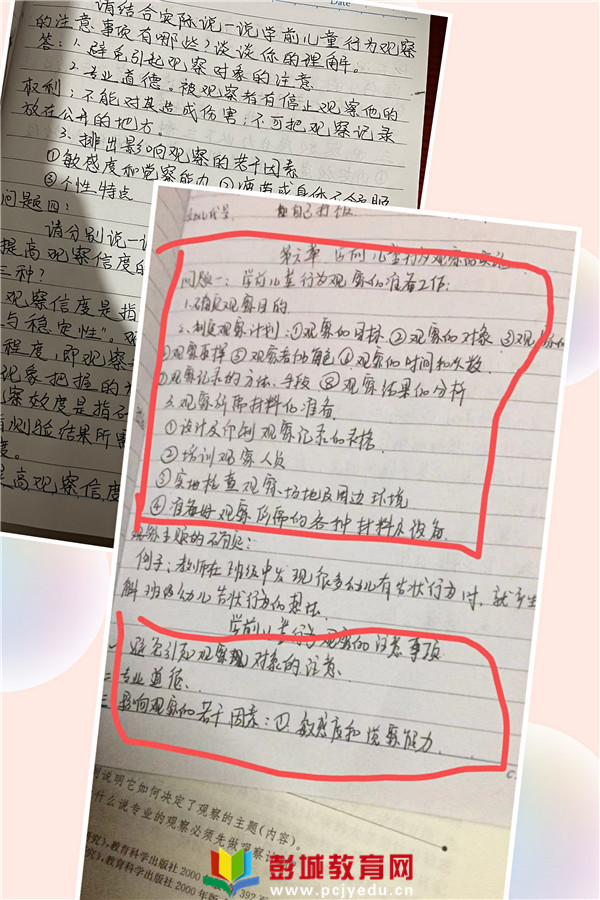 Date
请结合实际说一说学前儿童行为观察
的注意事项有哪些?谈谈你的理解。
答:1.避免引起观察对象的注意
2.专业道德。被观察者有停止观察他的
权利;不能对其造成伤害;不可把观察记录
放在公开的地方。
3.排出影响观察的若干因素
①敏感度和觉察能力 ②疲劳或身体不舒服
③个性特点
问题四:
请分别说一说
提高观察信度的
三种?
观察信度是指
与稳定性"。观
程度,即观察
现象把握的
察效度是指
测验结果所
度。
提高观察信度
自己打报
第六章 学前儿童行为观察的实施
问题一:学前儿童行为观察的准备工作:
1.确定观察目的
2.制定观察计划:①观察的目标 ②观察的对象 ③观察的
④观察取样 ⑤观察者的角色 ⑥观察的时间和次数
⑦观察记录的方法、手段 ⑧观察结果的分析
3.观察所需材料的准备
①设计及印制观察记录的表格
②培训观察人员
③实地检查观察场地及周边环境
④准备好观察所需的各种材料及设备
观察主题的确定:
例子:教师在班级中发现很多幼儿有告状行为时,就产生
解班级幼儿告状行为的想法
学前儿童行为观察的注意事项
一 避免引起观察对象的注意、
二 专业道德、
三 影响观察的若干因素:① 敏感度和觉察能力
说明它如何决定了观察的主题(内容)。
什么说专业的观察必须先做观察
研究),教育科学出版社 2000
究),教育科学出版社 2000年版
392
彭城教育网
www.pcjyedu.cn